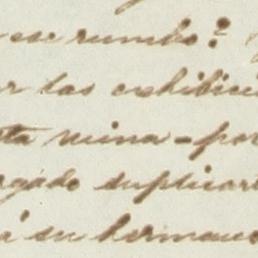 ese rumbo?
las exhibici
ta mina - por
rgado duplicar
á su hermano